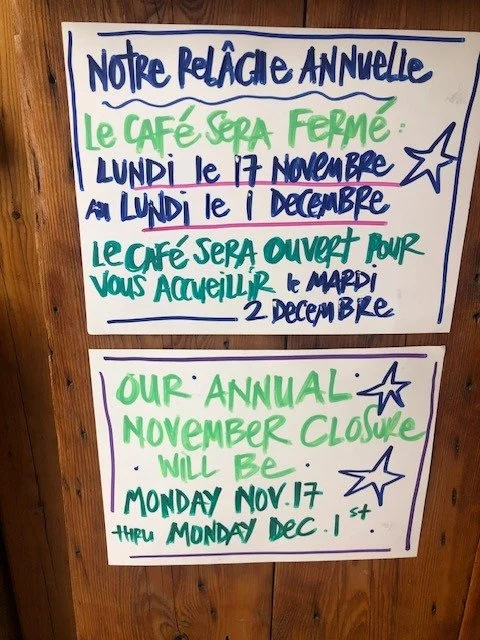 NOTRE RELÂCHE ANNUELLE
LE CAFÉ SERA FERMÉ :
LUNDI le 17 NOVEMBRE
AU LUNDI le 1 DECEMBRE
LE CAFÉ SERA OUVERT POUR
VOUS ACCUEILLIR le MARDI
2 DECEMBRE
OUR ANNUAL
NOVEMBER CLOSURE
WILL BE
MONDAY NOV. 17
thru MONDAY DEC. 1st.